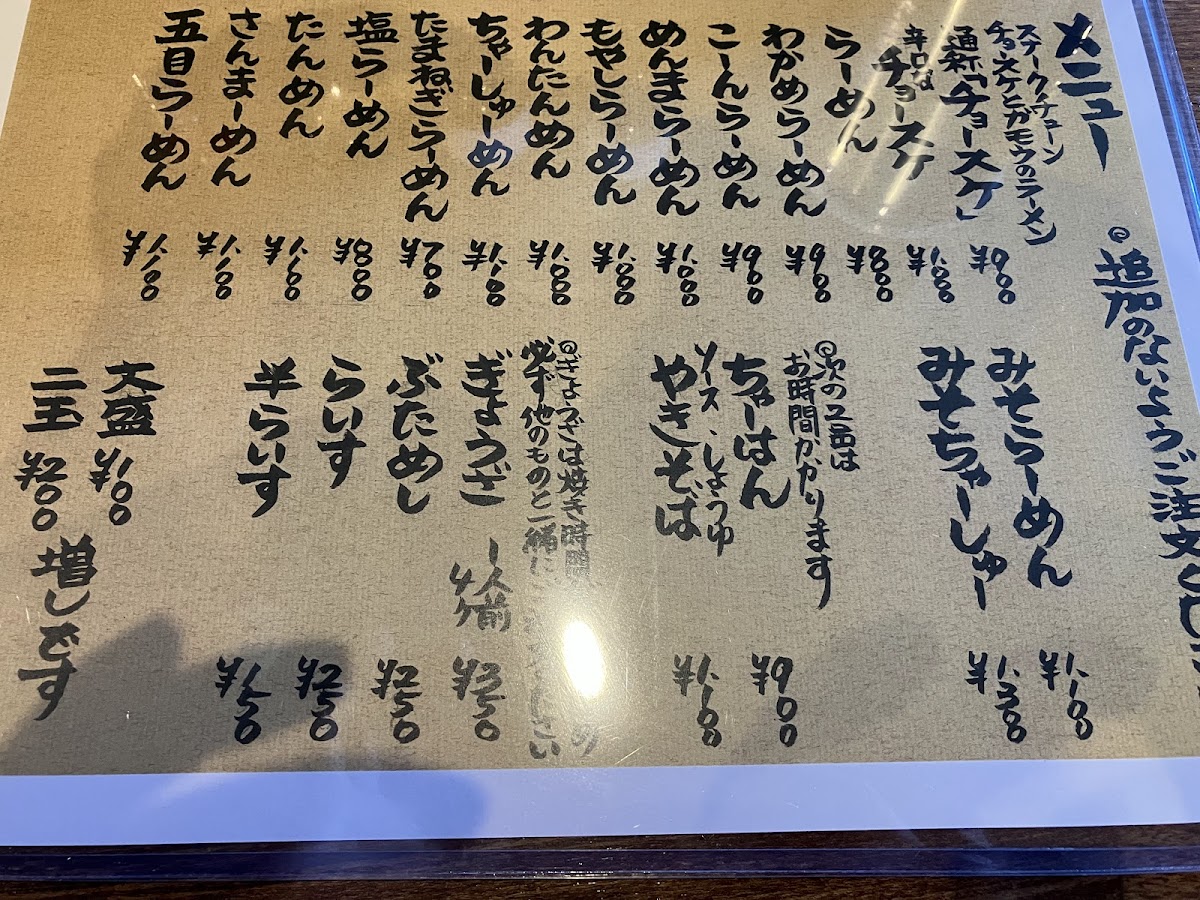 メニュー
◎追加のないようご注文
スネークチョーン
チョースケとガモウのラーメン
通称「チョースケ」 ¥900
辛口な
チョースケ ¥1.000
らーめん ¥800
わかめらーめん ¥900
こーんらーめん ¥900
めんまらーめん ¥1.000
もやしらーめん ¥1.000
わんたんめん ¥1.000
ちゃーしゅーめん ¥1.100
たまねぎらーめん ¥700
塩らーめん ¥800
たんめん ¥1.100
さんまーめん ¥1.100
五目らーめん ¥1.100
みそらーめん ¥1.100
みそちゃーしゅー ¥1.300
◎次の2品は
お時間かかります
ちゃーはん ¥900
ソース、しょうゆ
やきそば ¥1.100
◎ぎょうざは焼き時間
必ず他のものと一緒に
ぎょうざ 一人前 ¥350
ぶためし ¥250
らいす ¥250
半らいす ¥150
大盛 ¥100
二玉 ¥200 増しです